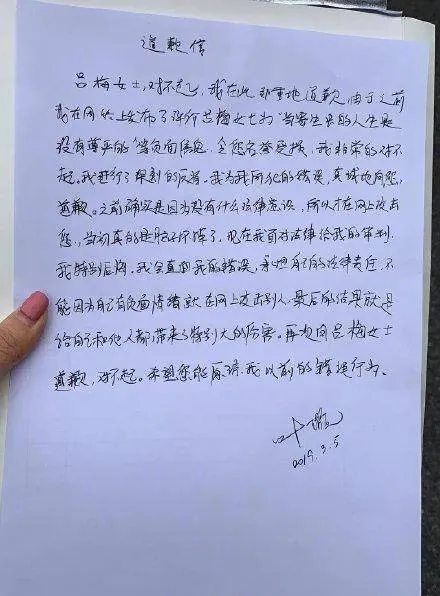 道歉信
吕梅女士,对不起,我在此郑重地道歉,由于之前
我在网络上发布了评价吕梅女士为"当寄生虫的人生是
没有尊严的"等负面信息,令您名誉受损,我非常的对不
起。我进行了深刻的反省,我为我所犯的错误,真诚地向您
道歉。之前确实是因为没有什么法律意识,所以才在网上攻击
您,当初真的是脑子坏掉了,现在我面对法律给我的审判,
我特别后悔,我会直面我的错误,承担自己的法律责任,不
能因为自己有负面情绪就在网上攻击别人,最后的结果就是
给自己和他人都带来了特别大的伤害。再次向吕梅女士
道歉,对不起。希望您能原谅我以前的错误行为。
2019.3.5